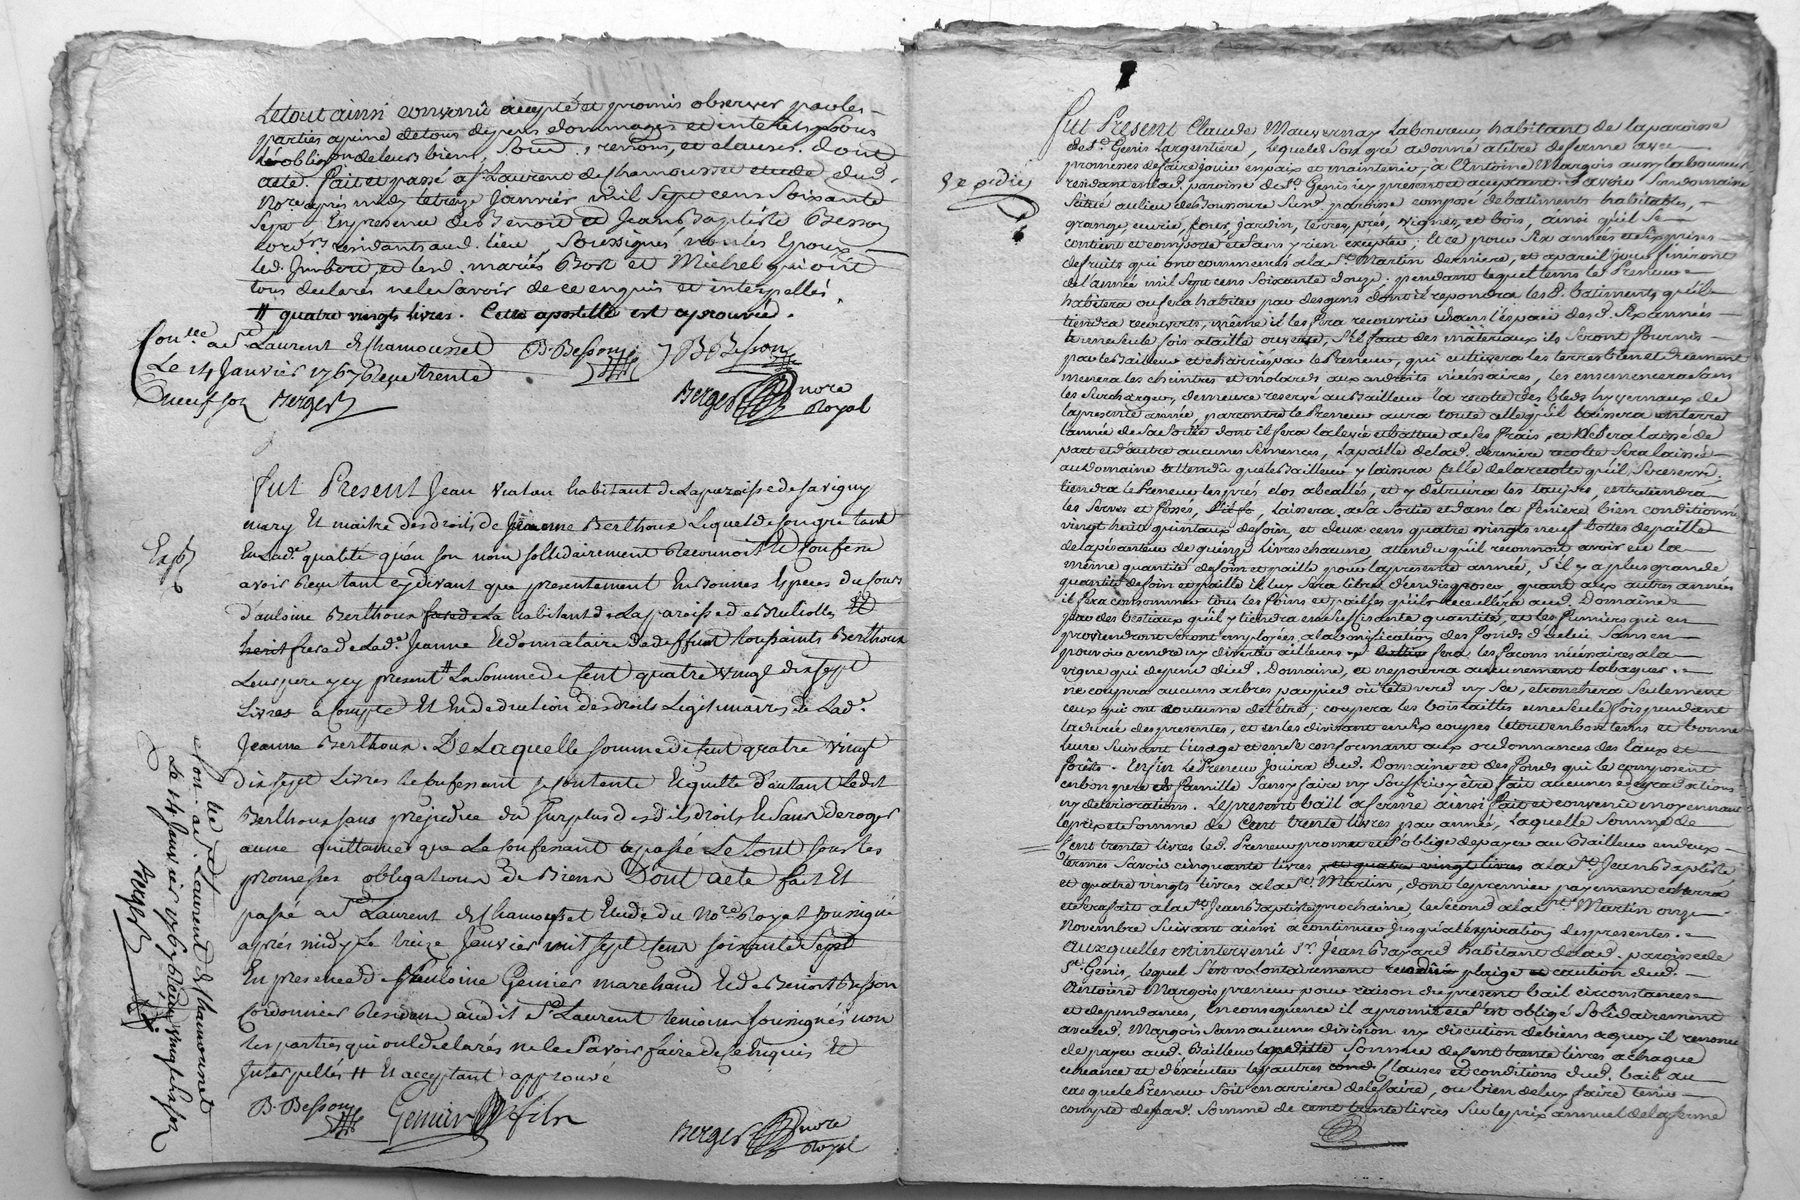 Le tout ainsi convenû accepté et promis observer par les
parties a peine de tous depens dommages et interests sous
l'oblig.on de leurs biens, soumd., renons, et clauses. dont
acte. fait et passé a St. Laurent de Chamousset etude dud.
No.re après midy le treize Janvier mil sept cens soixante
sept. En presence de Benoit et Jean Baptiste Besson
cord.rs residants aud. lieu, soussignés non les Epoux
led. Jimbert, et led. mariés Bost et Michel qui ont
tous declarés ne le savoir de ce enquis et interpellés.
# quatre vingts livres. Cette apostille est approuvée.
Con.lee a St Laurent de Chamousset
Le 14 Janvier 1767 Reçu trente
neuf sols Berger
B. Besson
J B Besson
Berger no.re
Royal
fut Present Jean viatan habitant de La paroisse de savigny
mary Et maitre des droits de Jeanne Berthoux Lequel de son gré tant
En Lad.e qualité qu'en son nom sollidairement Reconnoit Et Confesse
Exp
avoir Reçu tant cy devant que presentement En Bonnes Especes du Cours
d'antoine Berthoux habitant de La paroisse de Brulioles
frere de Lad.e Jeanne Et donnataire de deffunt toussaints Berthoux
Leur pere y cy present # La Somme de Cent quatre vingt dix sept
Livres a Compte Et En deduction des droits Legitimaires de Lad.e
Jeanne Berthoux. De Laquelle somme de Cent quatre vingt
dix sept Livres le Confessant se contente Et quitte d'autant Ledit
Berthoux sans prejudice du surplus desdits droits Et sans deroger
aune quittance que Le Confessant a passé Le tout sous les
promesses obligations de Biens Dont acte fait Et
passé a St Laurent de Chamousset Etude du No.re Royal soussigné
après midy Le treize Janvier mil sept Cent soixante Sept
En presence de Antoine Genier marchand Et de Benoit Besson
Cordonnier Residans audit St Laurent temoins soussignés non
les parties qui ont declarés ne le Savoir faire de ce Enquis Et
Interpellés # Et acceptant approuvé
Con.lée a St. Laurent de Chamousset
Le 14 Janvier 1767 Reçu vingt six sols
Berger
B. Besson
Genier fils
Berger no.re
Royal
fut Present Claude Mauvernay Laboureur habitant de la paroisse
de St. Genis Largentiere, lequel de son gré a donné a titre de ferme avec
promesses de faire jouir en paix et maintenir, a Antoine Margois aussy laboureur
Expediée
residant en lad. paroisse de St. Genis icy present et acceptant. Savoir son domaine
situé au lieu de Boussoure sus d. paroisse composé de batiments habitables,
grange, ecurie, cour, jardin, terres, prés, vignes, et bois, ainsi qu'il se
contient et comporte et sans y rien excepter; Et ce pour six années et six prises
de fruits qui ont commencés a la St. Martin derniere, et a pareil jour finiront
de l'année mil sept cens soixante douze. pendant lequel tems le Preneur
habitera ou fera habiter par des gens dont il repondra les d. batiments qu'il
tiendra recouverts, même il les fera recouvrir dans l'espace desd. six années
une seule fois a taille ouverte, s'il faut des materiaux ils seront fournis
par le Bailleur et chariés par le Preneur, qui cultivera les terres bien et duement
menera les cheintres et molards aux endroits necessaires, les ensemencera sans
les surcharger, demeure reservé au Bailleur la recolte des bleds hyvernaux de
la presente année, par contre le Preneur aura toute celle qu'il laissera en terre
l'année de sa sortie dont il fera la levée et battue a ses frais, et Ne sera laissé de
part et d'autre aucunes semences, la paille de lad. derniere recolte sera laissée
au Domaine attendu que le Bailleur y laissera celle de la recolte qu'il se reserve,
tiendra le Preneur les prés clos a beallés, et y detruira les taupes, entretiendra
les serves et fosses, laissera a sa sortie et dans la feniere bien conditionné
vingt huit quintaux de foin, et deux cens quatre vingts neuf bottes de paille
de la pesanteur de quinze livres chacune, attendu qu'il reconnoit avoir eu la
même quantité de foin et paille pour la presente année, s'il y a plus grande
quantité de foin et paille il luy sera libre d'en disposer, quant aux autres années
il fera consommer tous les foins et pailles qu'il recueillera aud. Domaine
par des bestiaux qu'il y tiendra en suffisante quantité, et les fumiers qui en
proviendront seront employés a la bonification des fonds d'icelui sans en
pouvoir vendre ny divertir ailleurs, fera les façons necessaires a la
vigne qui depend dud. Domaine, et ne pourra aucunement labaquer.
ne coupera aucuns arbres par pied ou tête verd ny sec, etronchera seulement
ceux qui ont coutume de l'être, coupera les bois taillis une seule fois pendant
la durée des presentes, et en les divisant en six coupes le tout en bon tems et bonne
lune suivant l'usage et en se conformant aux ordonnances des Eaux et
forêts. Enfin le Preneur jouira dud. Domaine et des fonds qui le composent
en bon pere de famille sans y faire ny souffrir y être fait aucunes degradations
ny deteriorations. Le present bail a ferme ainsi fait et convenu moyennant
le prix et somme de Cent trente livres par année, laquelle somme de
Cent trente livres led. Preneur promet et s'oblige de payer au Bailleur en deux
termes savoir cinquante livres, et quatre vingts livres a la St. Jean Baptiste,
et quatre vingts livres a la St. Martin, dont le premier payement echerra
et se fera fait a la St. Jean Baptiste prochaine, le second a la St. Martin onze
Novembre suivant ainsi a continuer jusqu'a l'expiration des presentes.
Auxquelles est intervenû Sr. Jean Bazard habitant de lad. paroisse de
St. Genis, lequel s'est volontairement rendu plaige et caution dud.
Antoine Margois preneur pour raison du present bail circonstances
et dependances, En consequence il a promis et s'est obligé solidairement
avec led. Margois sans aucunes division ny discution de biens a quoy il renonce
de payer aud. Bailleur somme de Cent trente livres a chaque
echeance et d'executer les autres clauses et conditions dud. bail au
cas que le Preneur soit en arriere de le faire, ou bien de luy faire tenir
compte de pard. somme de cent trente livres sur le prix annuel de la ferme